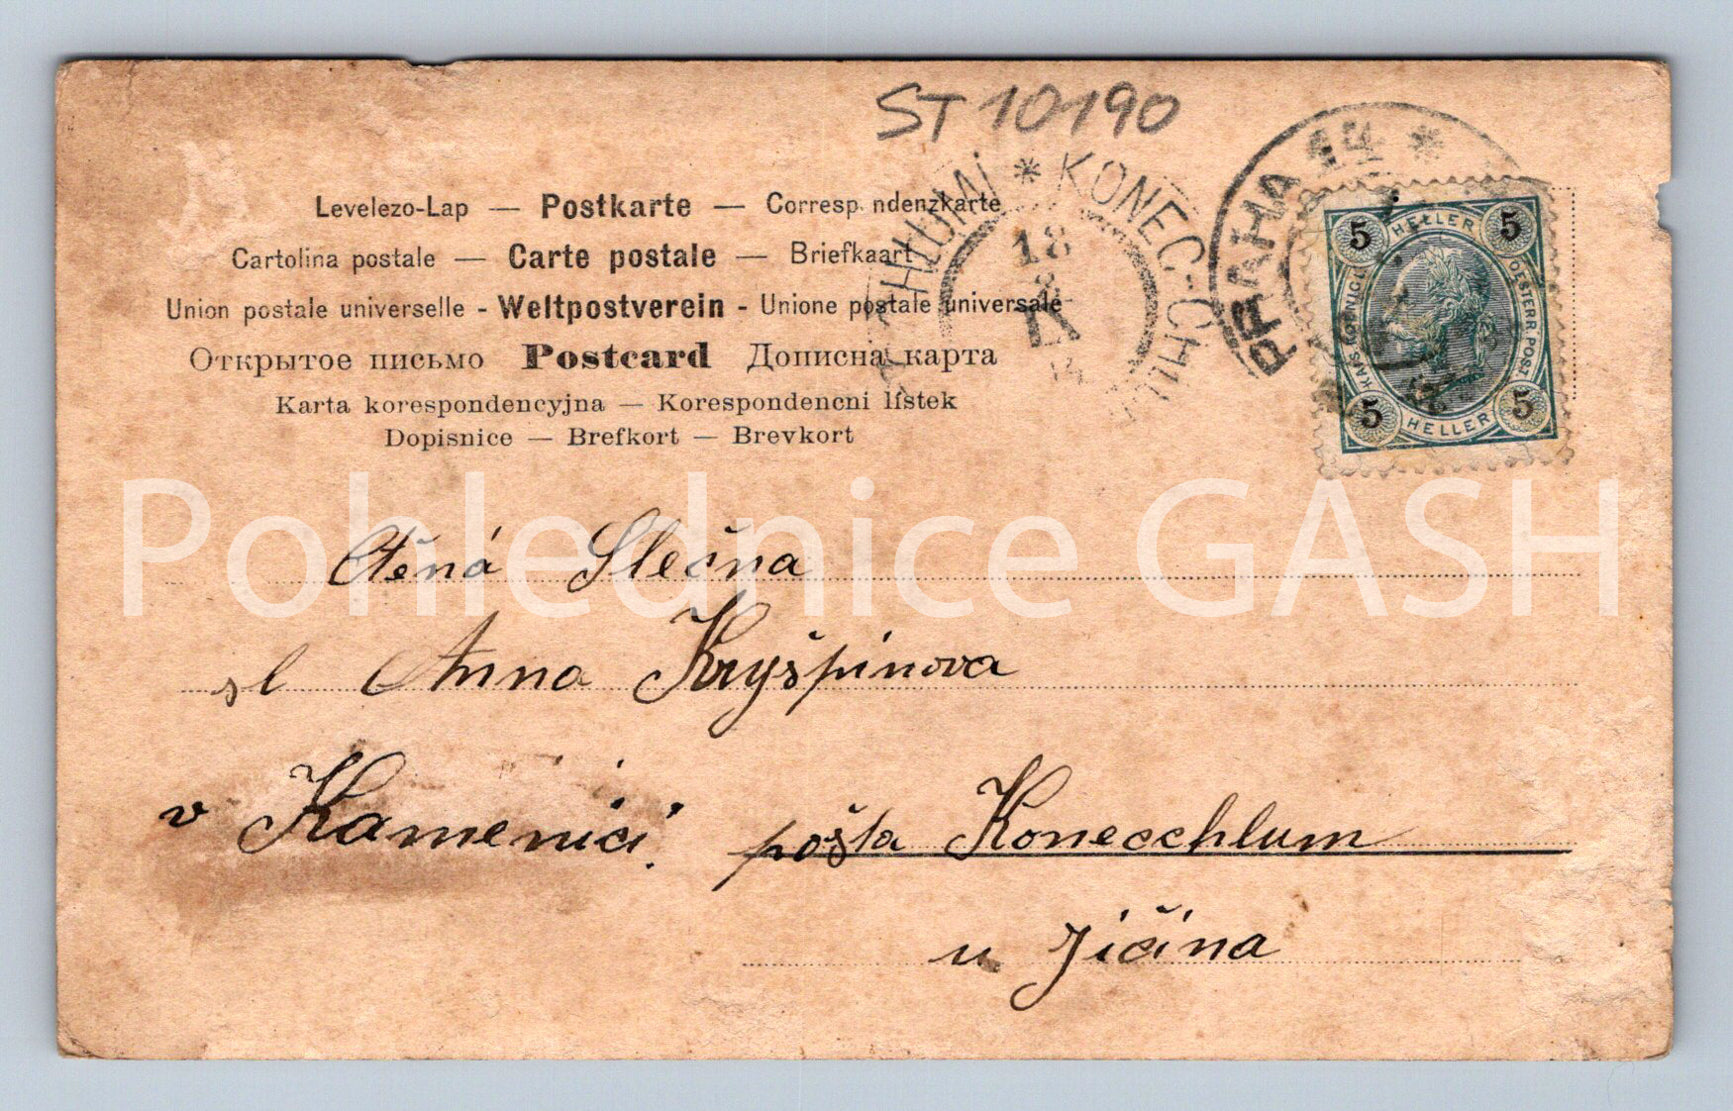 ST 10190
Levelezo-Lap — Postkarte — Corresp ndenzkarte
Cartolina postale — Carte postale — Briefkaart
Union postale universelle - Weltpostverein - Unione postale universale
Открытое письмо Postcard Дописна карта
Karta korespondencyjna — Korespondencni lístek
Dopisnice — Brefkort — Brevkort
HLUMÍ * KONEC-CHLU
18
IX
PRAHA 14 *
5 HELLER 5
KAIS. KOENIGL. OESTERR. POST
5 HELLER 5
Pohlednice GASH
Ctěná Slečna
sl Anna Kryšpinova
v Kamenici. pošta Konecchlum
u Jičina